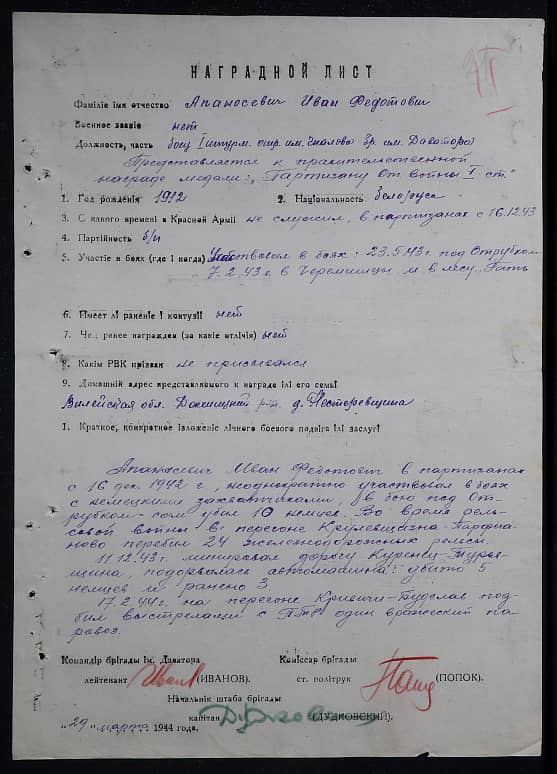 НАГРАДНОЙ ЛИСТ
Фаміліе імя отчество Апаносевич Иван Федотович
Военное званіе нет
Должность, часть боец I штурм. отр. им. Чкалова бр. им. Даватора
Представляется к правительственной
награде медаль: „Партизану От. войны I ст."
1. Год рожденія 1912 2. Національность белорус
3. С какого времени в Красной Арміі не служил, в партизанах с 16.12.43
4. Партійность б/п
5. Участіе в боях (где і когда) Участвовал в боях: 23.5.43г. под Отрубком
7.2.43г. в Черемшицы и в лесу Гать
6. Імеет лі раненіе і контузіі нет
7. Чем ранее награжден (за какіе отлічія) нет
8. Какім РВК прізван не призывался
9. Домашній адрес представляемого к награде ілі его семьі
Вилейская обл. Докшицкий р-н д. Нестеровщина
1. Краткое, конкретное ізложеніе лічного боевого подвіга ілі заслугі
Апаносевич Иван Федотович в партизанах
с 16 дек. 1942 г, неоднократно участвовал в боях
с немецкими захватчиками, в бою под От-
рубком сам убил 10 немцев. Во время рель-
совой войны в перегоне Крулевщизна-Парфиа-
ново перебил 24 железнодорожных рельсы.
11.12.43г. минировал дорогу Куренец-
подорвалась автомашина: убито 5
немцев и ранено 3.
17.2.44г. на перегоне Кривичи-Будслав под-
бил выстрелами с ПТР один вражеский па-
ровоз.
Командір брігады ім. Даватора
Коміссар брігады
лейтенант (ИВАНОВ).
ст. політрук (ПОПОК).
Начальнік штаба брігады
капітан (ДУДКОВСКИЙ).
"29" марта 1944 года.